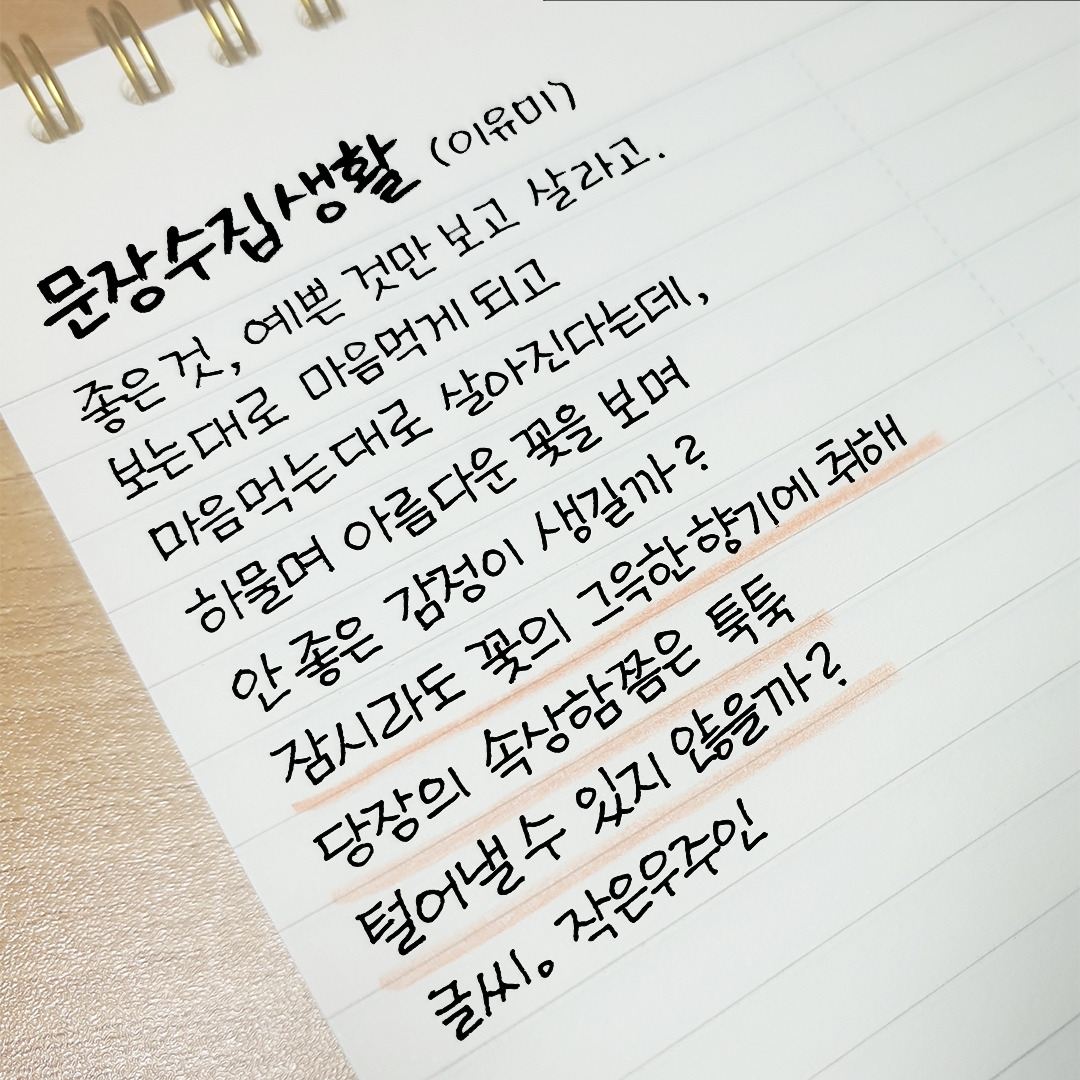 문장수집생활 (이유미)
좋은것, 예쁜 것만 보고 살라고.
보는대로 마음먹게 되고
마음먹는대로 살아진다는데,
하물며 아름다운 꽃을 보며
안 좋은 감정이 생길까?
잠시라도 꽃의 그윽한 향기에 취해
당장의 속상함쯤은 툭툭
털어낼 수 있지 않을까?
글씨。작은우주인